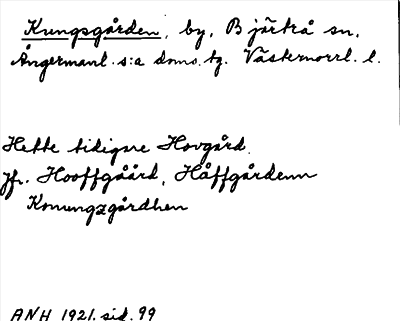 Kungsgården, by, Bjärtrå sn.
Ångermanl. s:a doms. tg. Västernorrl. l.
Hette tidigare Hovgård.
Jfr. Hooffgåård, Håffgårdenn
Konungzgårdhen
ANH 1921. sid. 99